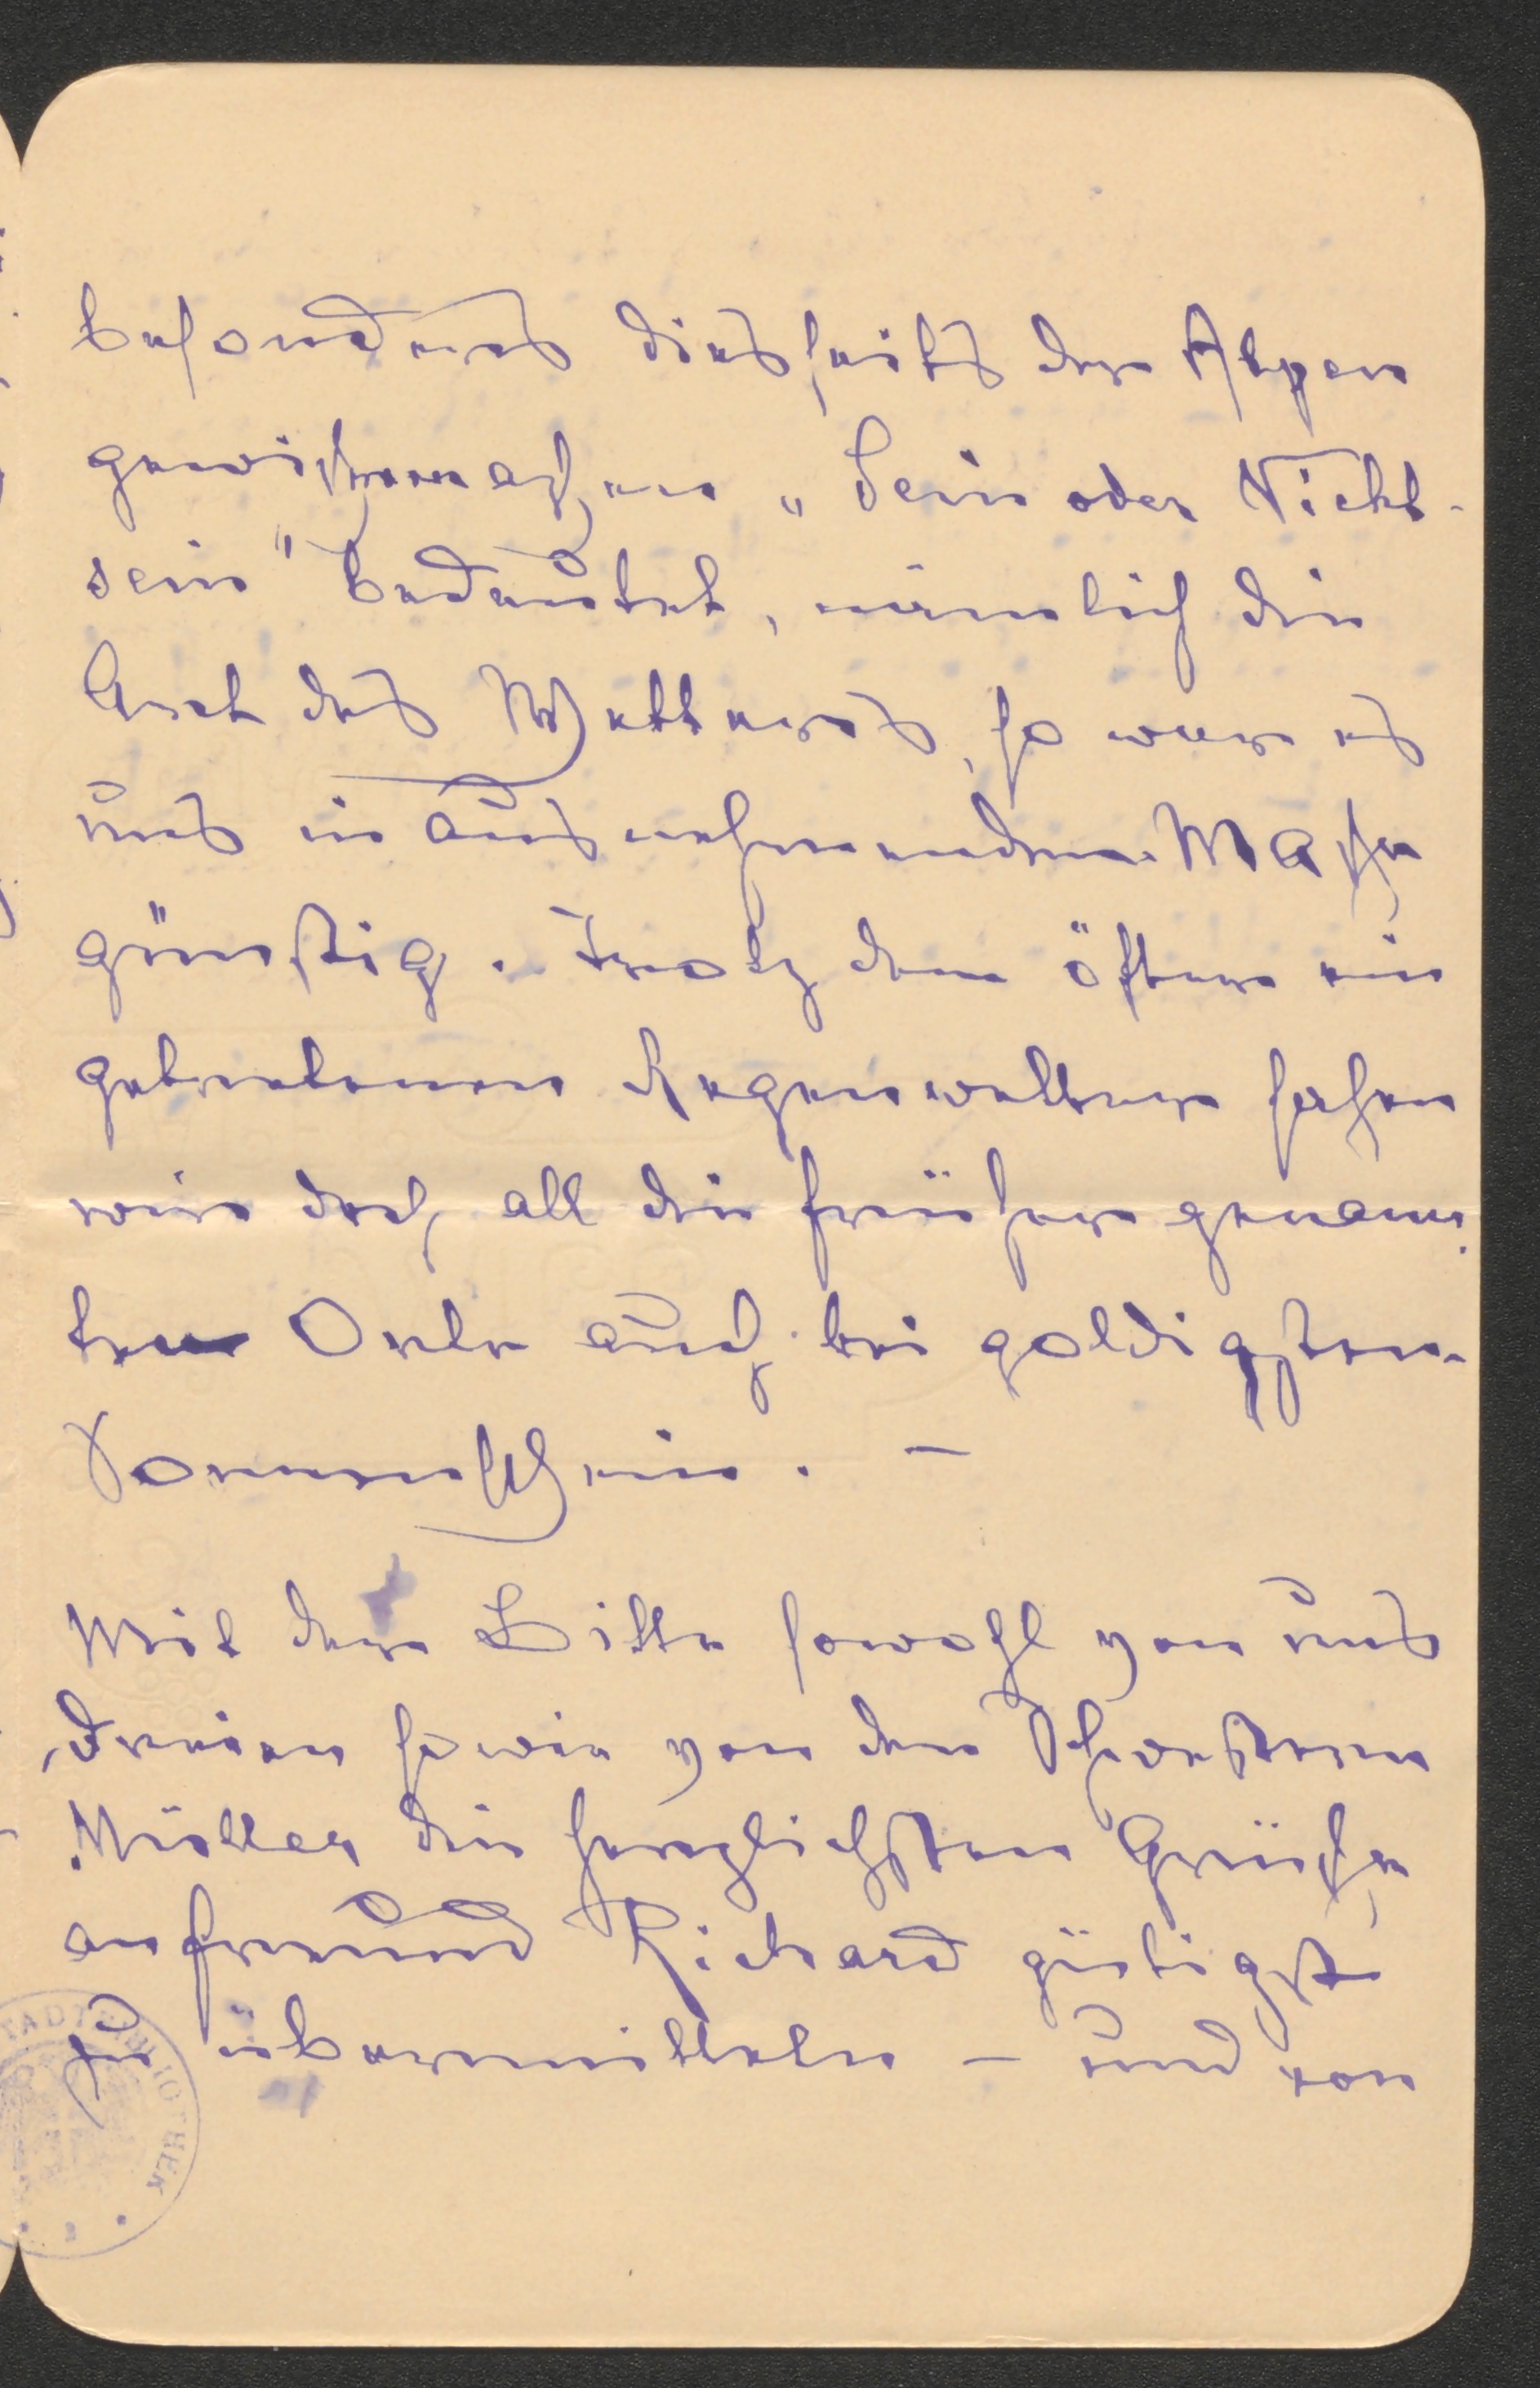 besonders diesseits der Alpen
gewissermaßen „Sein oder Nicht-
sein" bedeutet, nämlich die
Art des Wetters, so war es
uns in ausnehmendem Maße
günstig. Trotz dem öfters ein
getretenen Regenwetter sahen
wir doch all die früher genann
ten Orte auch bei goldigstem
Sonnenschein. —
Mit der Bitte sowohl von uns
Dreien sowie von den Schwestern
Müller die herzlichsten Grüße
an Freund Richard gütigst
zu übermitteln — und von
STADTBIBLIOTHEK